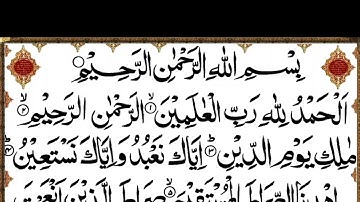 بِسْمِ اللهِ الرَّحْمٰنِ الرَّحِيْمِ
اَلْحَمْدُ لِلّٰهِ رَبِّ الْعٰلَمِيْنَ ۙ﴿۱﴾ الرَّحْمٰنِ الرَّحِيْمِ ۙ﴿۲﴾
مٰلِكِ يَوْمِ الدِّيْنِ ؕ﴿۳﴾ اِيَّاكَ نَعْبُدُ وَ اِيَّاكَ نَسْتَعِيْنُ ؕ﴿۴﴾
اِهْدِنَا الصِّرَاطَ الْمُسْتَقِيْمَ ۙ﴿۵﴾ صِرَاطَ الَّذِيْنَ اَنْعَمْتَ